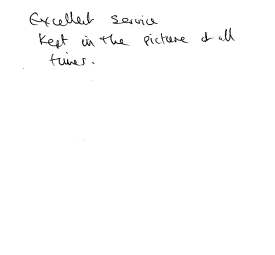 Excellent service
kept in the picture at all
times.